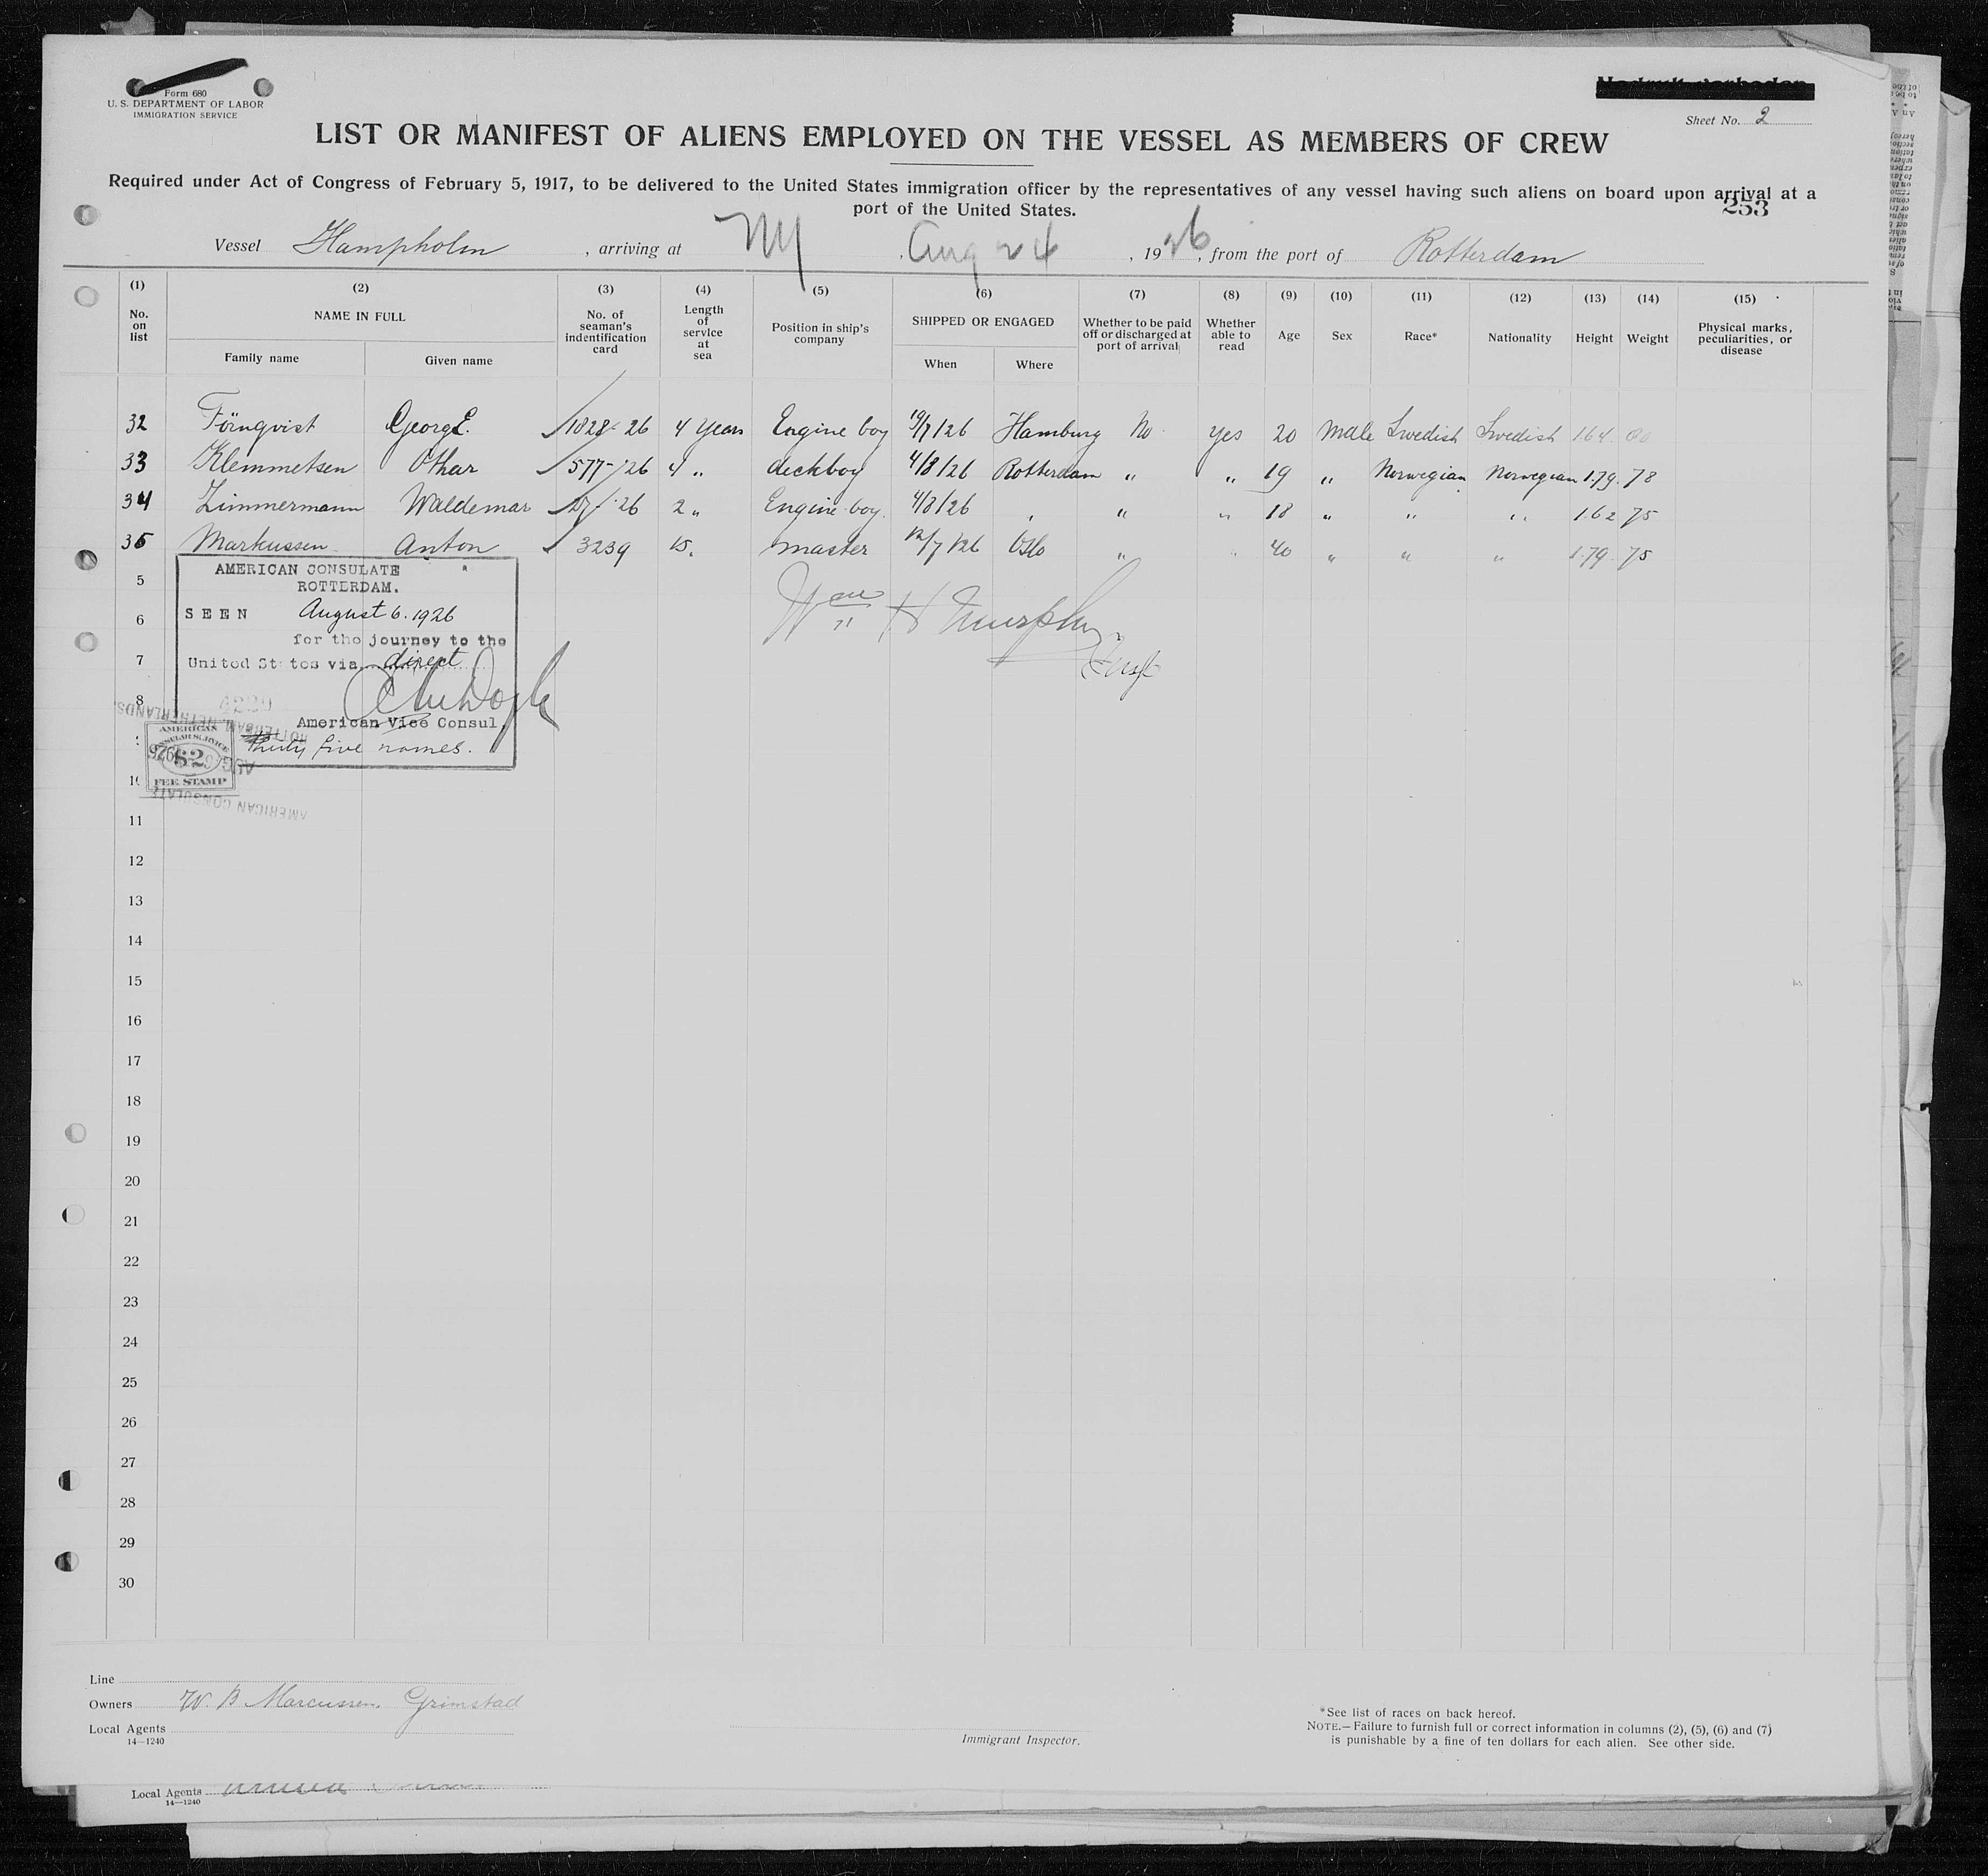 Form 680
U. S. DEPARTMENT OF LABOR
IMMIGRATION SERVICE
Sheet No. 2
LIST OR MANIFEST OF ALIENS EMPLOYED ON THE VESSEL AS MEMBERS OF CREW
Required under Act of Congress of February 5, 1917, to be delivered to the United States immigration officer by the representatives of any vessel having such aliens on board upon arrival at a
port of the United States.
253
Vessel Hampholm , arriving at NY , Aug 24 , 1926 , from the port of Rotterdam
(1) (2) (3) (4) (5) (6) (7) (8) (9) (10) (11) (12) (13) (14) (15)
No. on list
NAME IN FULL
Family name
Given name
No. of seaman's indentification card
Length of service at sea
Position in ship's company
SHIPPED OR ENGAGED
When
Where
Whether to be paid off or discharged at port of arrival
Whether able to read
Age
Sex
Race*
Nationality
Height
Weight
Physical marks, peculiarities, or disease
32 Förnqvist Georg E. 1828-26 4 years Engine boy 19/7/26 Hamburg No yes 20 male Swedish Swedish 1.64
33 Klemmetsen Othar 577-26 4 " deckboy 4/8/26 Rotterdam " " 19 " Norwegian Norwegian 1.79 78
34 Zimmermann Waldemar 26 2 " Engine boy 4/8/26 " " 18 " " " 1.62 75
35 Markussen Anton 3239 15 " master 12/7/26 Oslo " " 40 " " " 1.79 75
AMERICAN CONSULATE
ROTTERDAM.
SEEN August 6. 1926
for the journey to the
United States via direct
American Vice Consul
Thirty five names.
Wm H Murphy
AMERICAN
CONSULAR SERVICE
$2
FEE STAMP
AUG 6 1926
ROTTERDAM, NETHERLANDS.
AMERICAN CONSULATE
5
6
7
8
11
12
13
14
15
16
17
18
19
20
21
22
23
24
25
26
27
28
29
30
Line
Owners W. B Marcussen. Grimstad
Local Agents
14—1240
Immigrant Inspector.
*See list of races on back hereof.
NOTE.—Failure to furnish full or correct information in columns (2), (5), (6) and (7)
is punishable by a fine of ten dollars for each alien. See other side.
Local Agents
14—1240